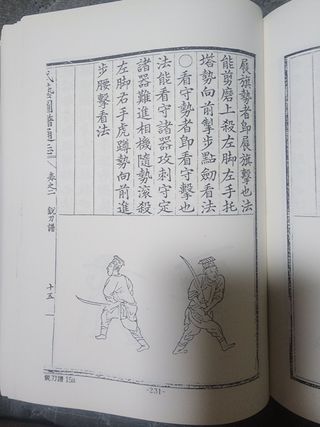 展旗勢者即展旗擊也法
能剪磨上殺左脚左手托
塔勢向前掣步點劍看法
○看守勢者即看守擊也
法能看守諸器攻刺守定
諸器難進相機隨勢滚殺
左脚右手虎蹲勢向前進
步腰擊看法
武藝圖譜通志 卷之二 銳刀譜 十五
銳刀譜 15a
-231-